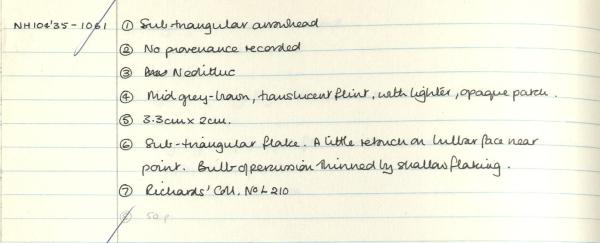 NH104'35-1061 ① Sub-triangular arrowhead
② No provenance recorded
③ Neolithic
④ Mid grey-brown, translucent flint, with lighter, opaque patch.
⑤ 3.3cm x 2cm.
⑥ Sub-triangular flake. A little retouch on bulbar face near
point. Bulb of percussion thinned by shallow flaking.
⑦ Richards' Coll. No L 210
⑧ 50p